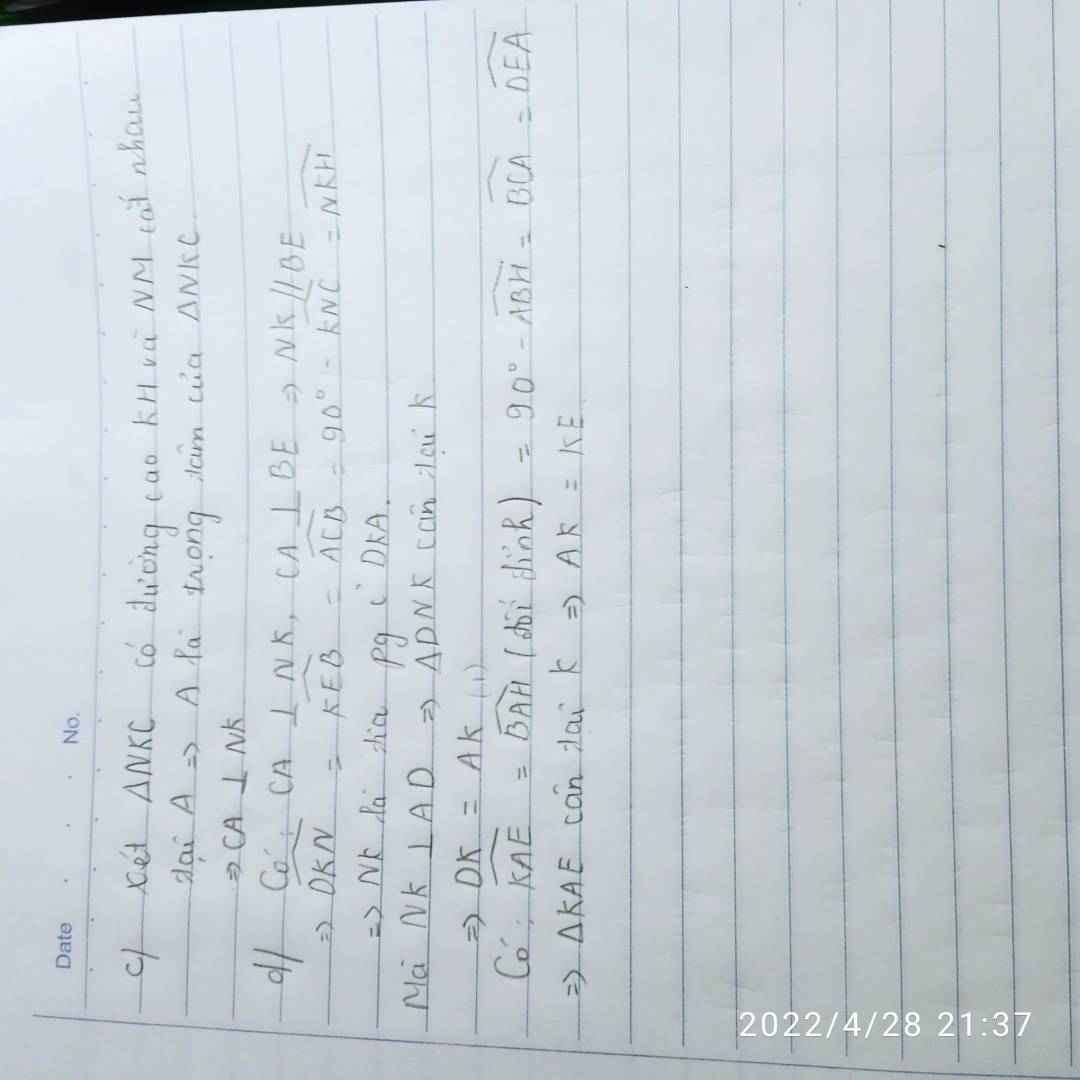 Date No.
c) Xét ΔNKC có đường cao KH và NM cắt nhau
tại A => A là trọng tâm của ΔNKC
=> CA ⊥ NK
d) Có: CA ⊥ NK, CA ⊥ BE => NK // BE
=> \widehat{DKN} = \widehat{KEB} = \widehat{ACB} = 90° - \widehat{KNC} = \widehat{NKH}
=> NK là tia pg DKA.
Mà NK ⊥ AD => ΔDNK cân tại K
=> DK = AK (1)
Có: \widehat{KAE} = \widehat{BAH} (đối đỉnh) = 90° - \widehat{ABH} = \widehat{BCA} = \widehat{DEA}
=> ΔKAE cân tại K => AK = KE
2022/4/28 21:37